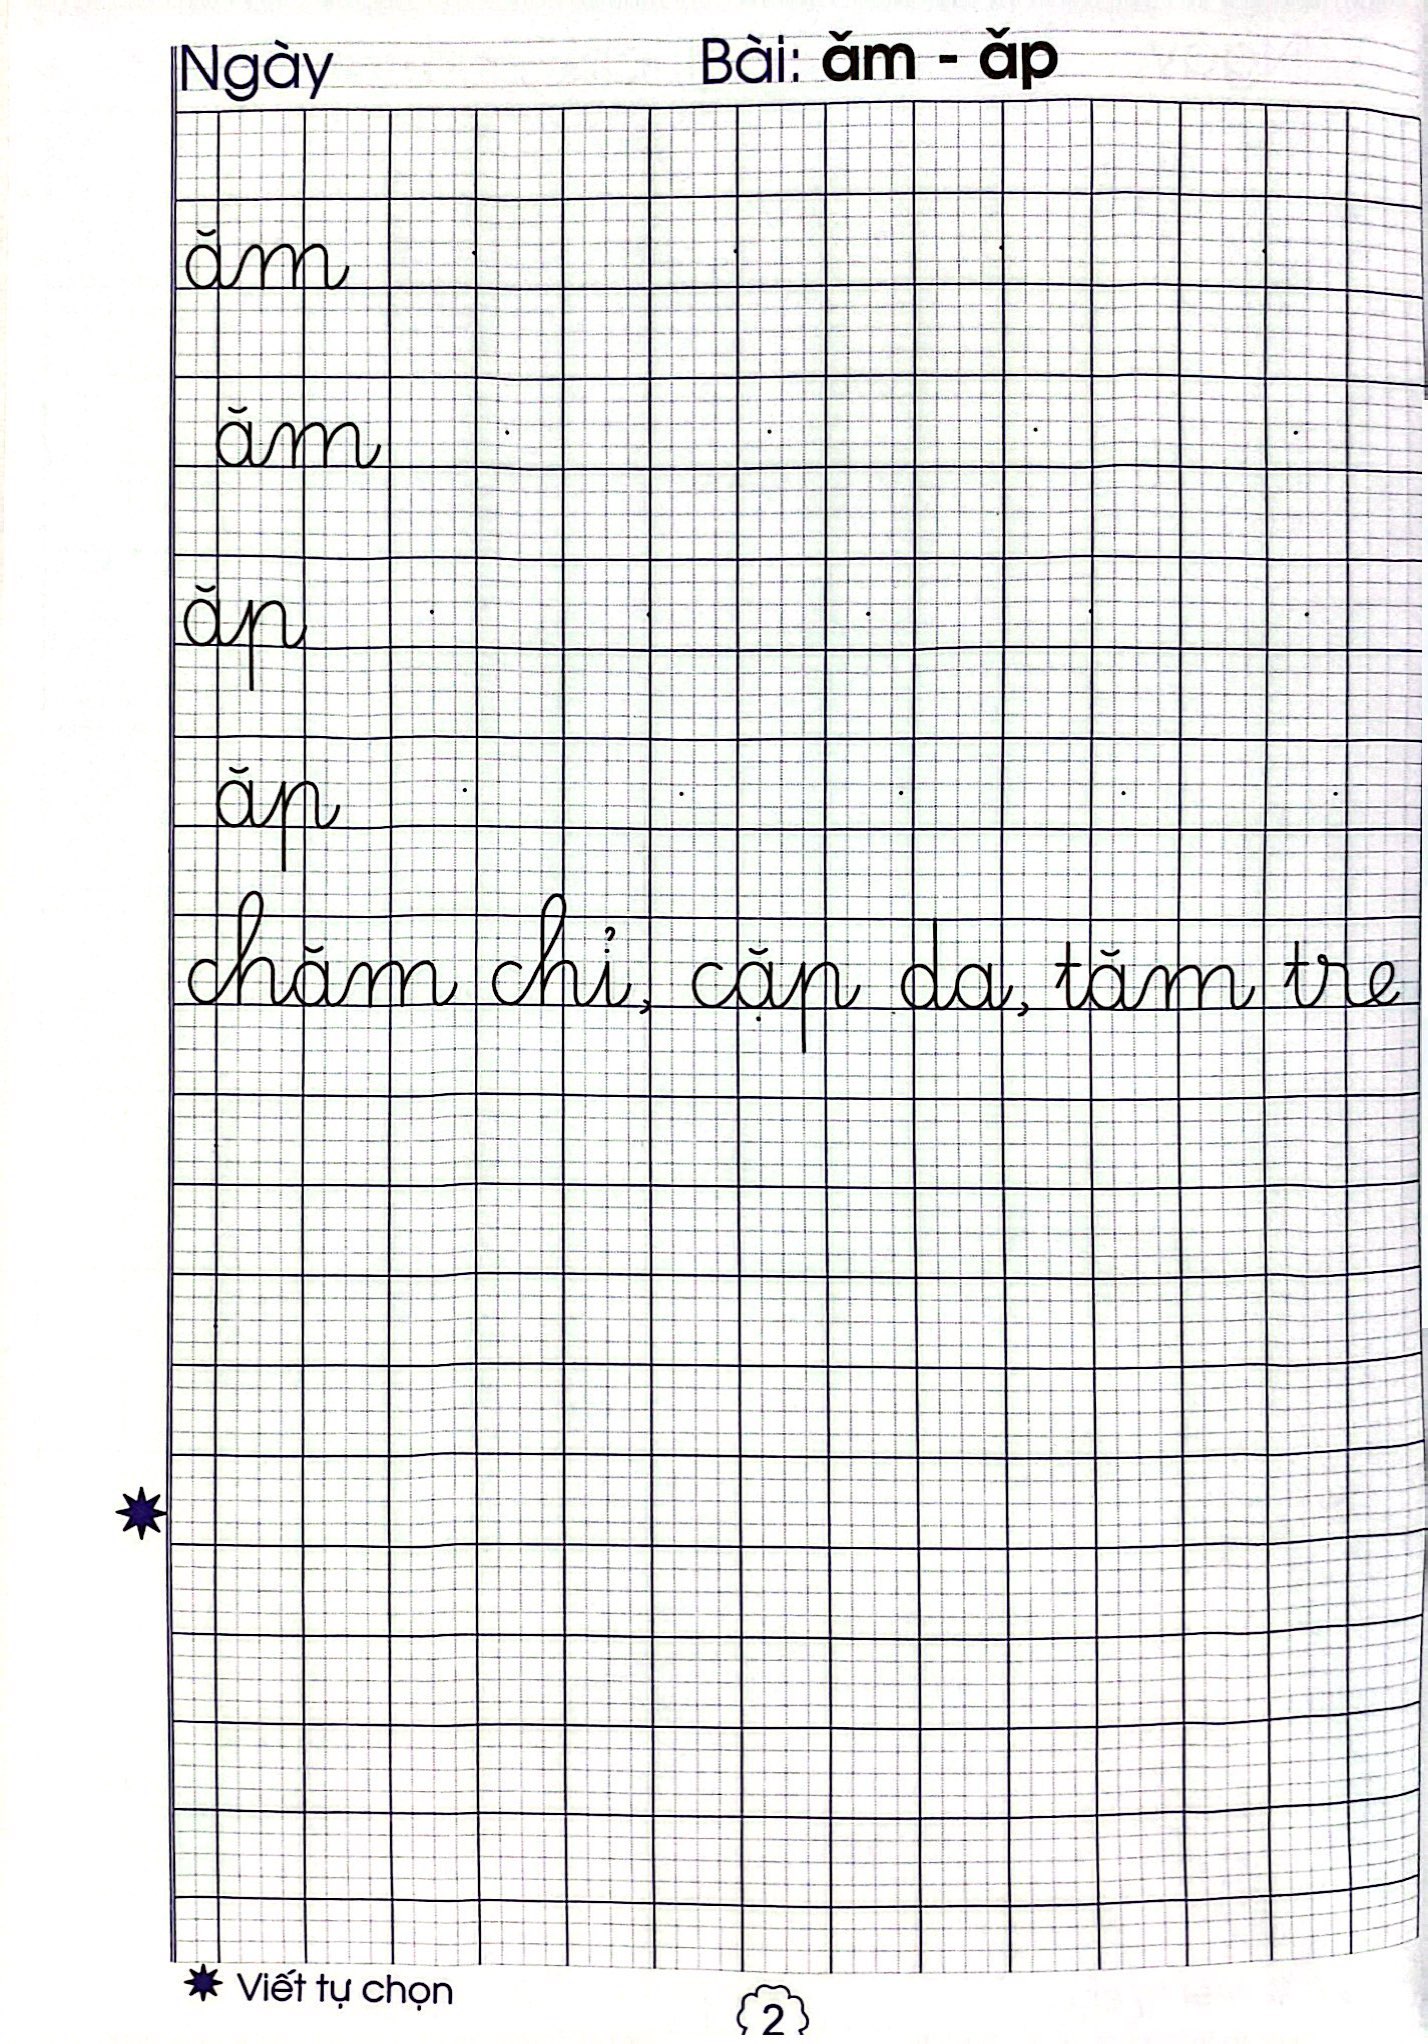 Ngày Bài: ăm - ăp
ăm
ăm
ăp
ăp
chăm chỉ, cặp da, tăm tre
Viết tự chọn
2